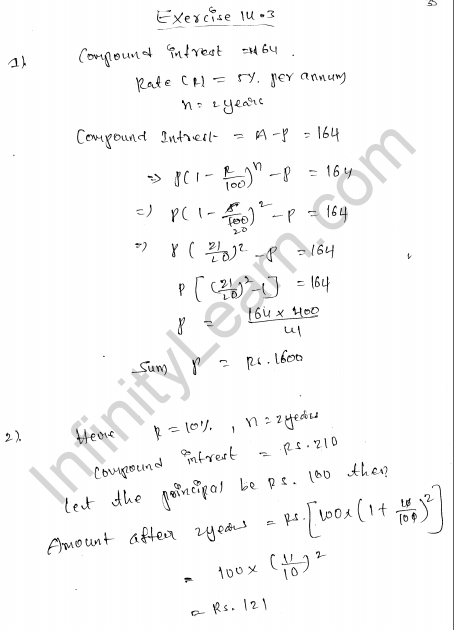 Exercise 14.3
1). Compound intrest = 164.
Rate (R) = 5%. per annum
n = 2 years
Compound Intrest = A - P = 164
⇒ P(1 - R/100)^n - P = 164
⇒ P(1 - 5/100 20)^2 - P = 164
⇒ P (21/20)^2 - P = 164
P [(21/20)^2 - 1] = 164
P = 164 x 400 / 41
Sum P = Rs. 1600
2). Here R = 10%, n = 2 years
Compound intrest = Rs. 210
let the principal be Rs. 100 then
Amount after 2 years = Rs. [100 x (1 + 10/100)^2]
= 100 x (11/10)^2
= Rs. 121
InfinityLearn.com